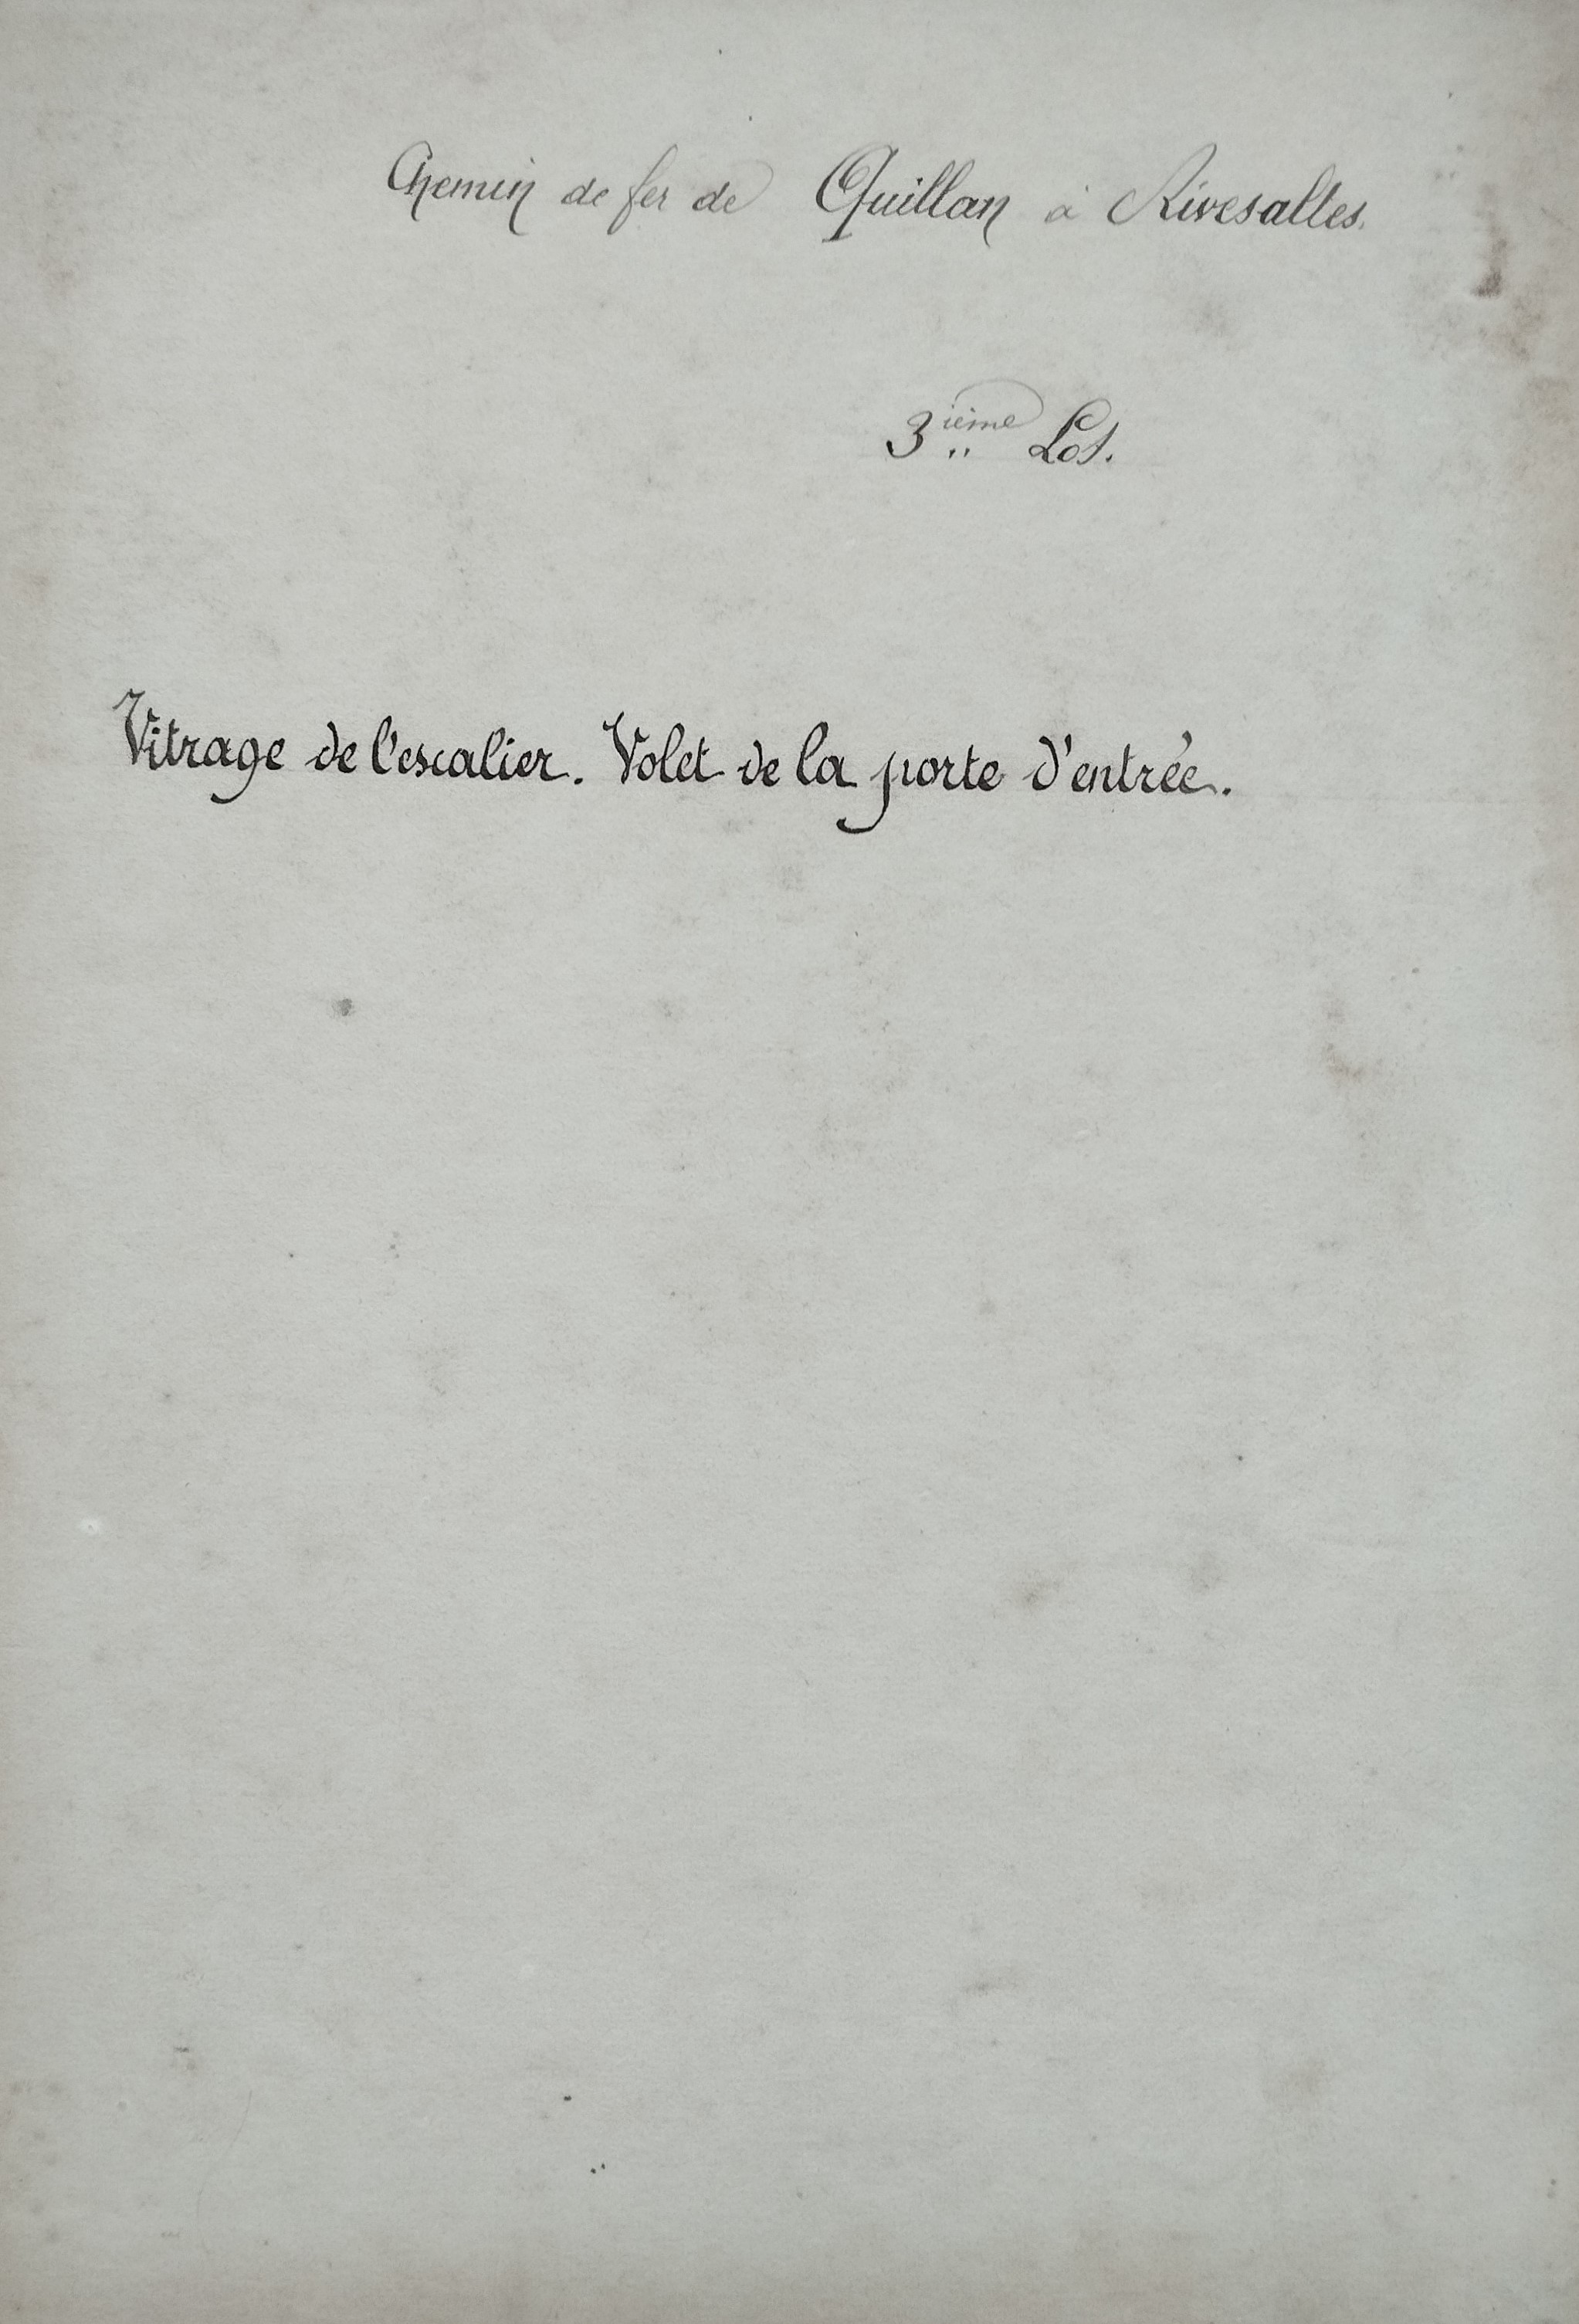 Chemin de fer de Quillan à Rivesaltes.
3ième Lot.
Vitrage de l'escalier. Volet de la porte d'entrée.